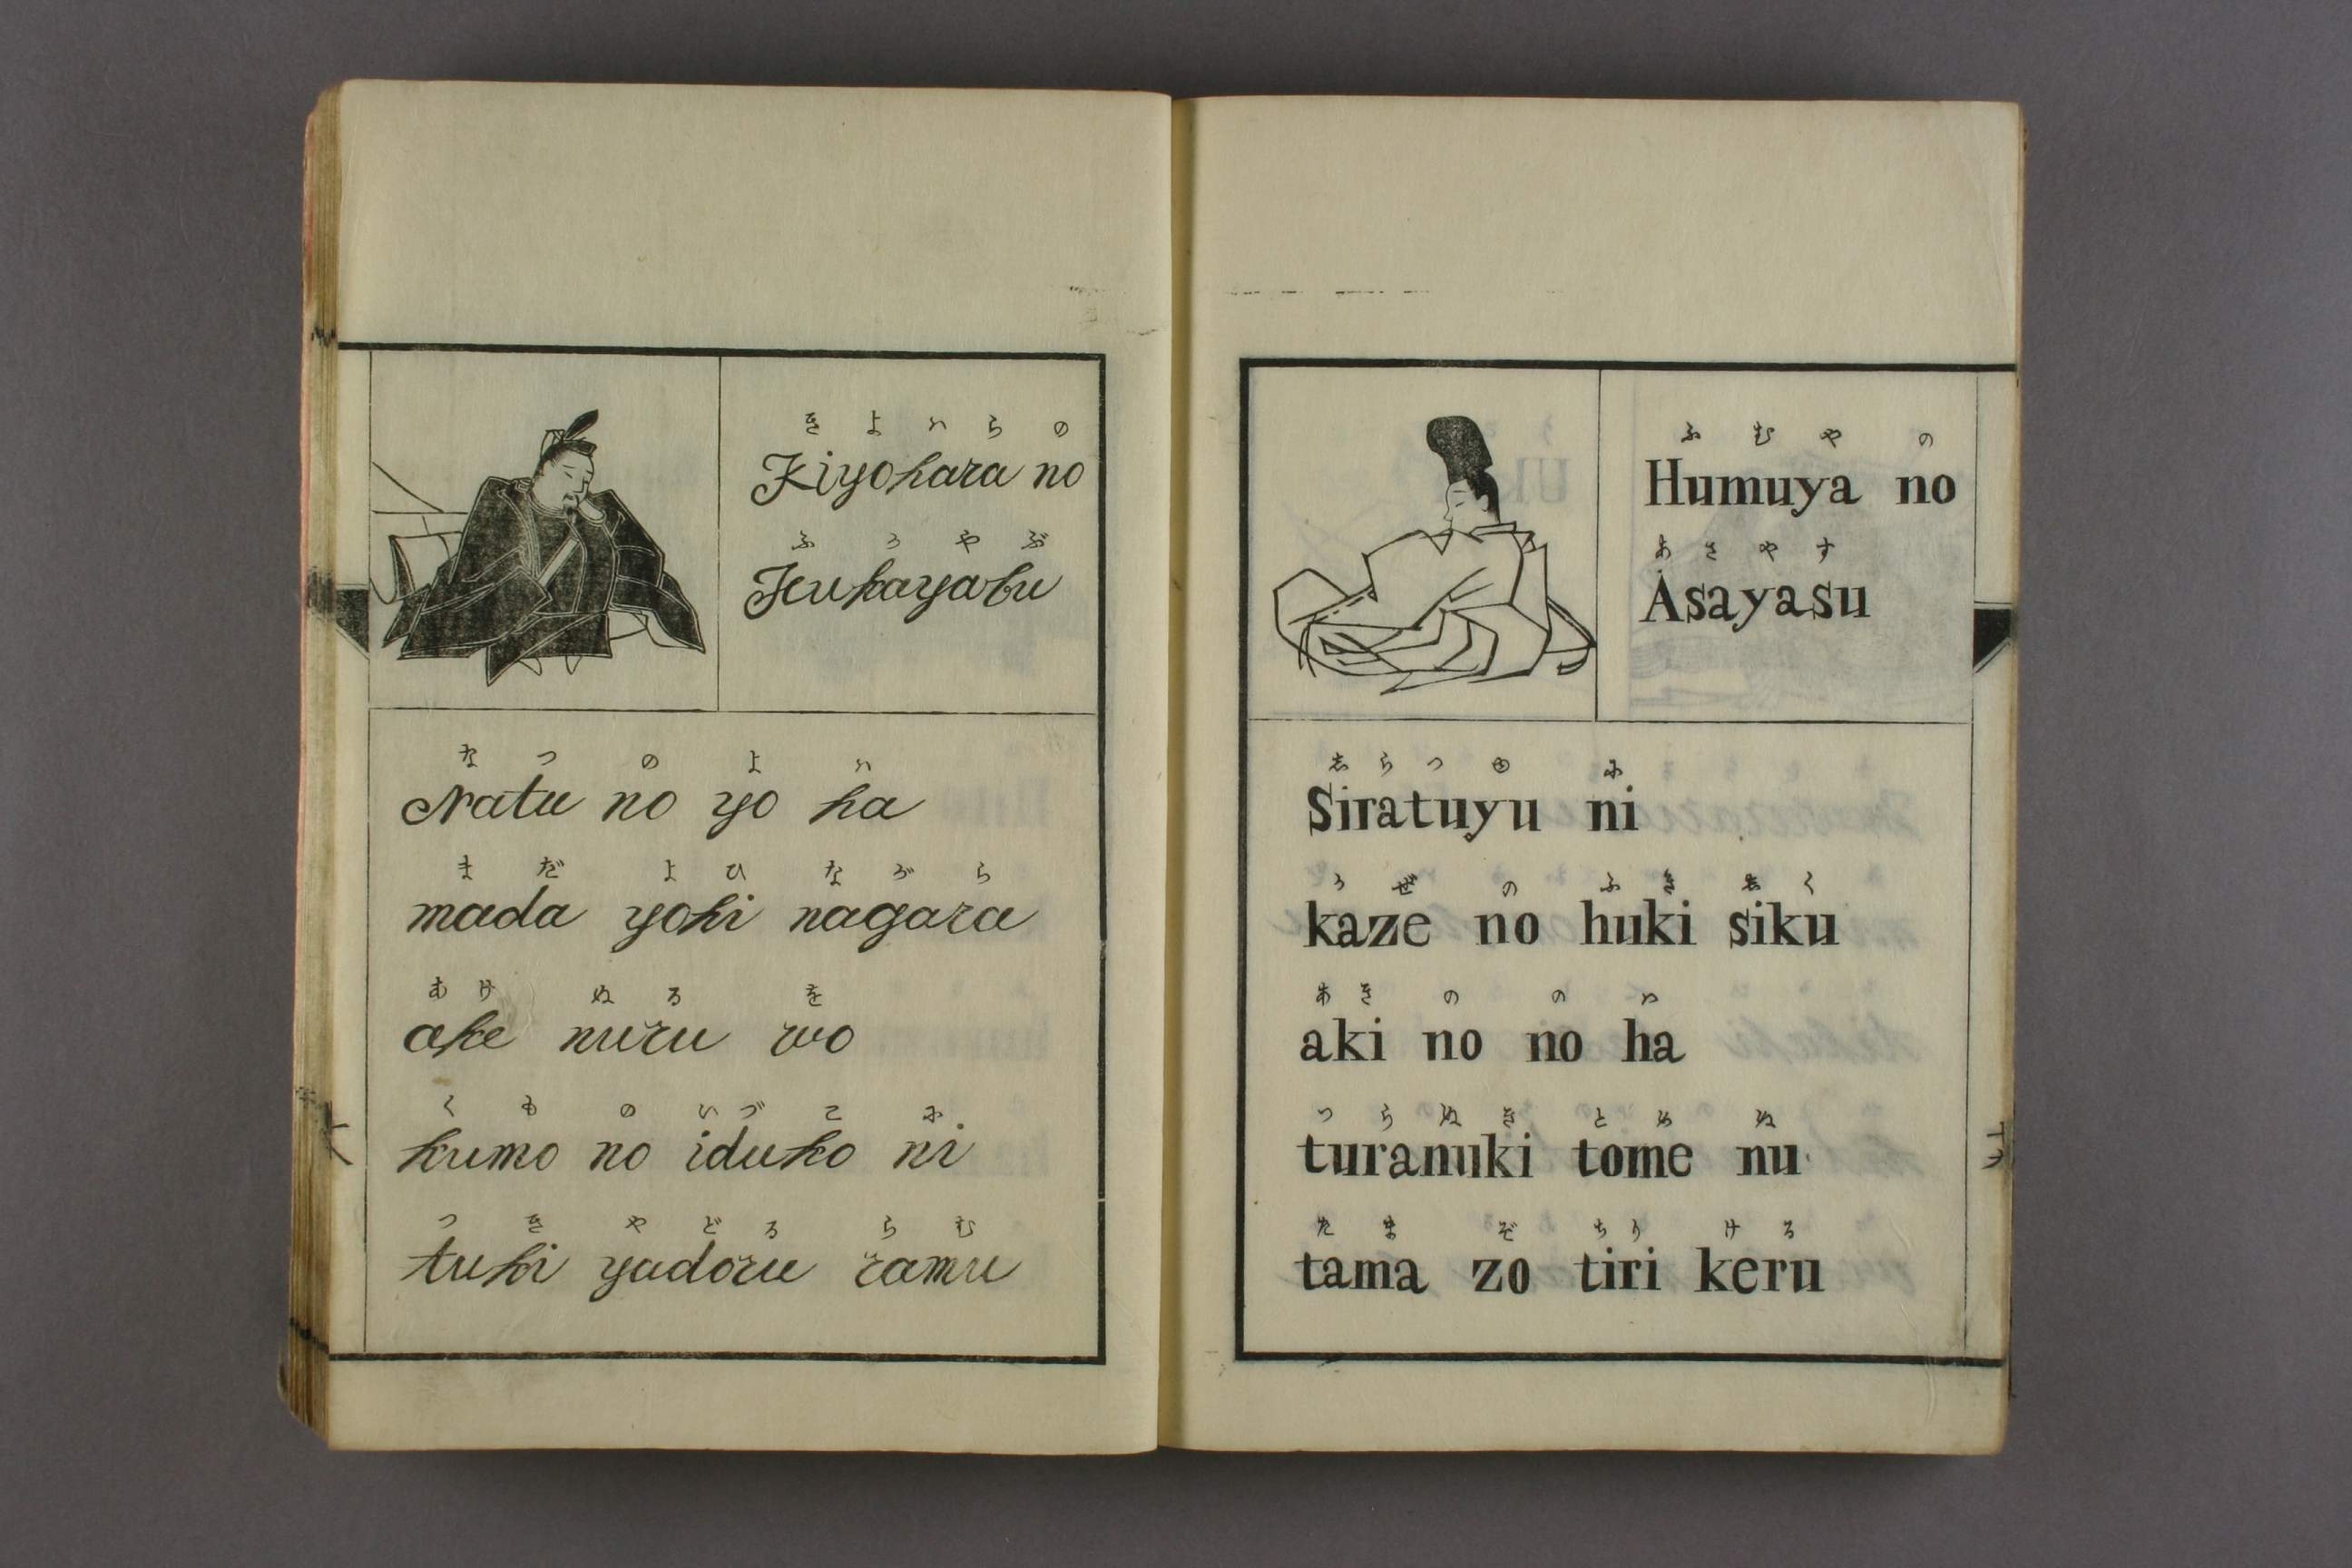 きよはらの
Kiyohara no
ふかやぶ
Hukayabu
なつ の よ は
Natu no yo ha
まだ よひ ながら
mada yohi nagara
あけ ぬる を
ake nuru wo
くも の いづこ に
kumo no iduko ni
つき やどる らむ
tuki yadoru ramu
ふむや の
Humuya no
あさやす
Asayasu
しらつゆ に
Siratuyu ni
かぜ の ふき しく
kaze no huki siku
あき の の は
aki no no ha
つらぬき とめ ぬ
turanuki tome nu
たま ぞ ちり ける
tama zo tiri keru